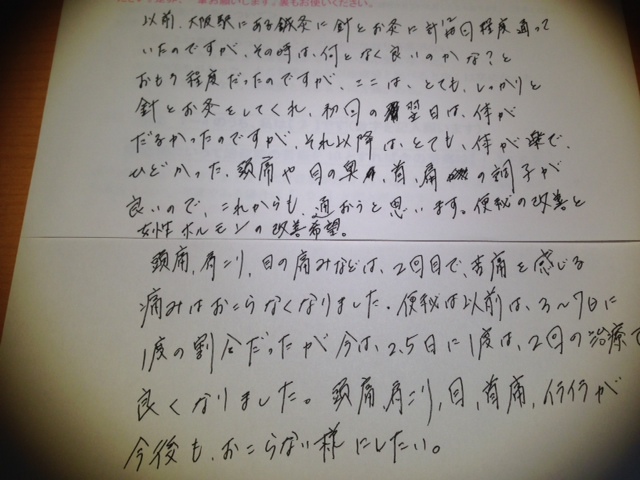 お願いします。裏もお使いください。
以前、大阪駅にある鍼灸に針とお灸に計12回程度通って
いたのですが、その時は、何となく良いのかな?と
おもう程度だったのですが、ここは、とても、しっかりと
針とお灸をしてくれ、初回の翌日は、体が
だるかったのですが、それ以降は、とても、体が楽で、
ひどかった、頭痛や目の奥、首、肩の調子が
良いので、これからも、通おうと思います。便秘の改善と
女性ホルモンの改善希望。
頭痛、肩こり、目の痛みなどは、2回目で、苦痛を感じる
痛みはおこらなくなりました。便秘は以前は、3~7日に
1度の割合だったが今は、2.5日に1度は、2回の治療で
良くなりました。頭痛、肩こり、目、首痛、イライラが
今後も、おこらない様にしたい。